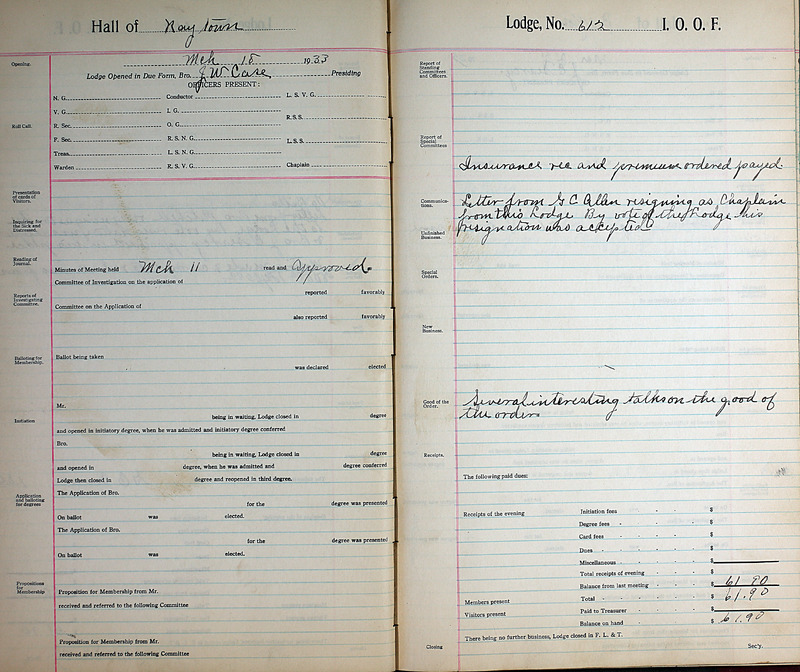 Hall of Raytown
Mch 18 1933
Opening.
Lodge Opened in Due Form, Bro. J W Case Presiding
OFFICERS PRESENT:
N. G. Conductor L. S. V. G.
V. G. I. G.
R. S. S.
Roll Call.
R. Sec. O. G.
F. Sec. R. S. N. G.
L. S. S.
Treas. L. S. N. G.
Warden R. S. V. G. Chaplain
Presentation
of cards of
Visitors.
Inquiring for
the Sick and
Distressed.
Reading of
Journal.
Minutes of Meeting held Mch 11 read and Approved.
Committee of Investigation on the application of
reported favorably
Reports of
Investigating
Committee.
Committee on the Application of
also reported favorably
Balloting for
Membership.
Ballot being taken
was declared elected
Mr.
being in waiting, Lodge closed in degree
Initiation
and opened in initiatory degree, when he was admitted and initiatory degree conferred
Bro.
being in waiting, Lodge closed in degree
and opened in degree, when he was admitted and degree conferred
Lodge then closed in degree and reopened in third degree.
Application
and balloting
for degrees
The Application of Bro.
for the degree was presented
On ballot was elected.
The Application of Bro.
for the degree was presented
On ballot was elected.
Propositions
for
Membership
Proposition for Membership from Mr.
received and referred to the following Committee
Proposition for Membership from Mr.
received and referred to the following Committee
Lodge, No. 612 I. O. O. F.
Report of
Standing
Committees
and Officers.
Report of
Special
Committees
Insurance rec and premium ordered payed.
Communica-
tions.
Letter from G C Allan resigning as Chaplain
from this Lodge By vote of the Lodge his
resignation was accepted
Unfinished
Business.
Special
Orders.
New
Business.
Good of the
Order.
Several interesting talks on the good of
the order
Receipts.
The following paid dues:
Receipts of the evening Initiation fees $
Degree fees $
Card fees $
Dues $
Miscellaneous $
Total receipts of evening $
Balance from last meeting $ 61 90
Members present Total $ 61.90
Visitors present Paid to Treasurer $
Balance on hand $ 61.90
There being no further business, Lodge closed in F. L. & T.
Closing Sec'y.